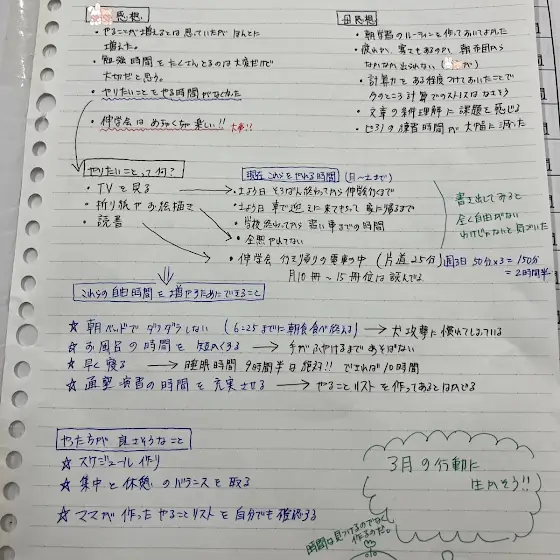 感想
・やることが増えるとは思っていたがほんとに
増えた。
・勉強時間をたくさんとるのは大変だけど
大切だと思う。
・やりたいことをやる時間がなくなった
・伸学会はめちゃくちゃ楽しい!! 大事!!
母感想
・朝学習のルーティンを作っておいてよかった
・疲れか、寒さもあるのか、朝布団から
なかなか出られない
・計算力をある程度つけておいたことで
今のところ計算でのストレスはなさそう
・文章の条件理解に課題を感じる
・ピアノの練習時間が大幅に減った
やりたいことって何?
・TVを見る
・折り紙やお絵描き
・読書
現在これらをやれる時間 (月〜土まで)
・土よう日 そろばん終わってから伸学会行くまで
・土よう日 車で迎えに来てもらって家に帰るまで
・学校終わってから習い事までの時間
・全然やれてない
・伸学会 行き帰りの電車の中 (片道25分) 週3日 50分×3=150分
=2時間半
月10冊〜15冊位は読んでる
書き出してみると
全く自由がない
わけじゃないと気づいた
これらの自由時間を増やすためにできること
☆ 朝ベッドでダラダラしない (6:25までに朝食食べ終える) → 犬攻撃に慣れてしまっている
☆ お風呂の時間を短くする → 手がふやけるまであそばない
☆ 早く寝る → 睡眠時間 9時間半は絶対!! できれば10時間
☆ 通塾前の時間を充実させる → やることリストを作ってあるとはかどる
やった方が良さそうなこと
☆ スケジュール作り
☆ 集中と休憩のバランスを取る
☆ ママが作ったやることリストを自分でも確認する
3月の行動に
生かそう!!
時間は見つけるのでなく
作るのだ。